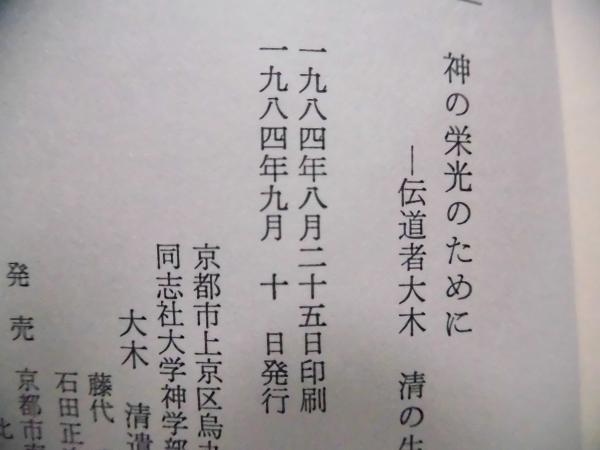 神の栄光のために
―伝道者大木 清の生
一九八四年八月二十五日印刷
一九八四年九月 十 日発行
京都市上京区烏丸
同志社大学神学部
大木 清遺
藤代
石田正
発売 京都市
北